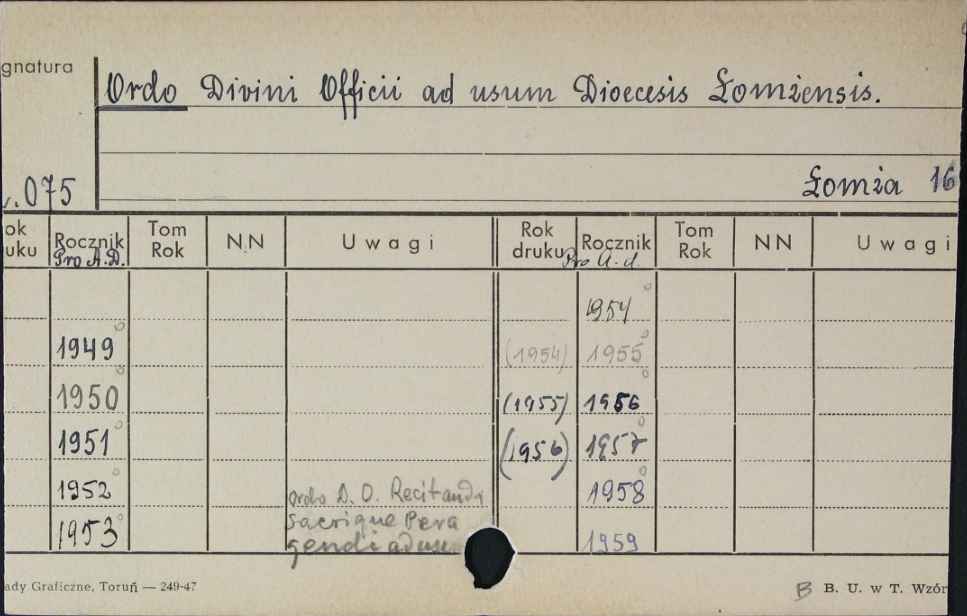 gnatura
Ordo Divini Officii ad usum Dioecesis Łomżensis.
.075
Łomża 16
ok
uku
Rocznik
Pro A.D.
Tom
Rok
NN
Uwagi
Rok
druku
Rocznik
Pro A.d.
Tom
Rok
NN
Uwagi
1954
1949 (1954) 1955
1950 (1955) 1956
1951 (1956) 1957
1952 Ordo D. O. Recitandi 1958
Sacrique Pera
1953 gendi ad usu 1959
ady Graficzne, Toruń — 249-47
B B. U. w T. Wzór